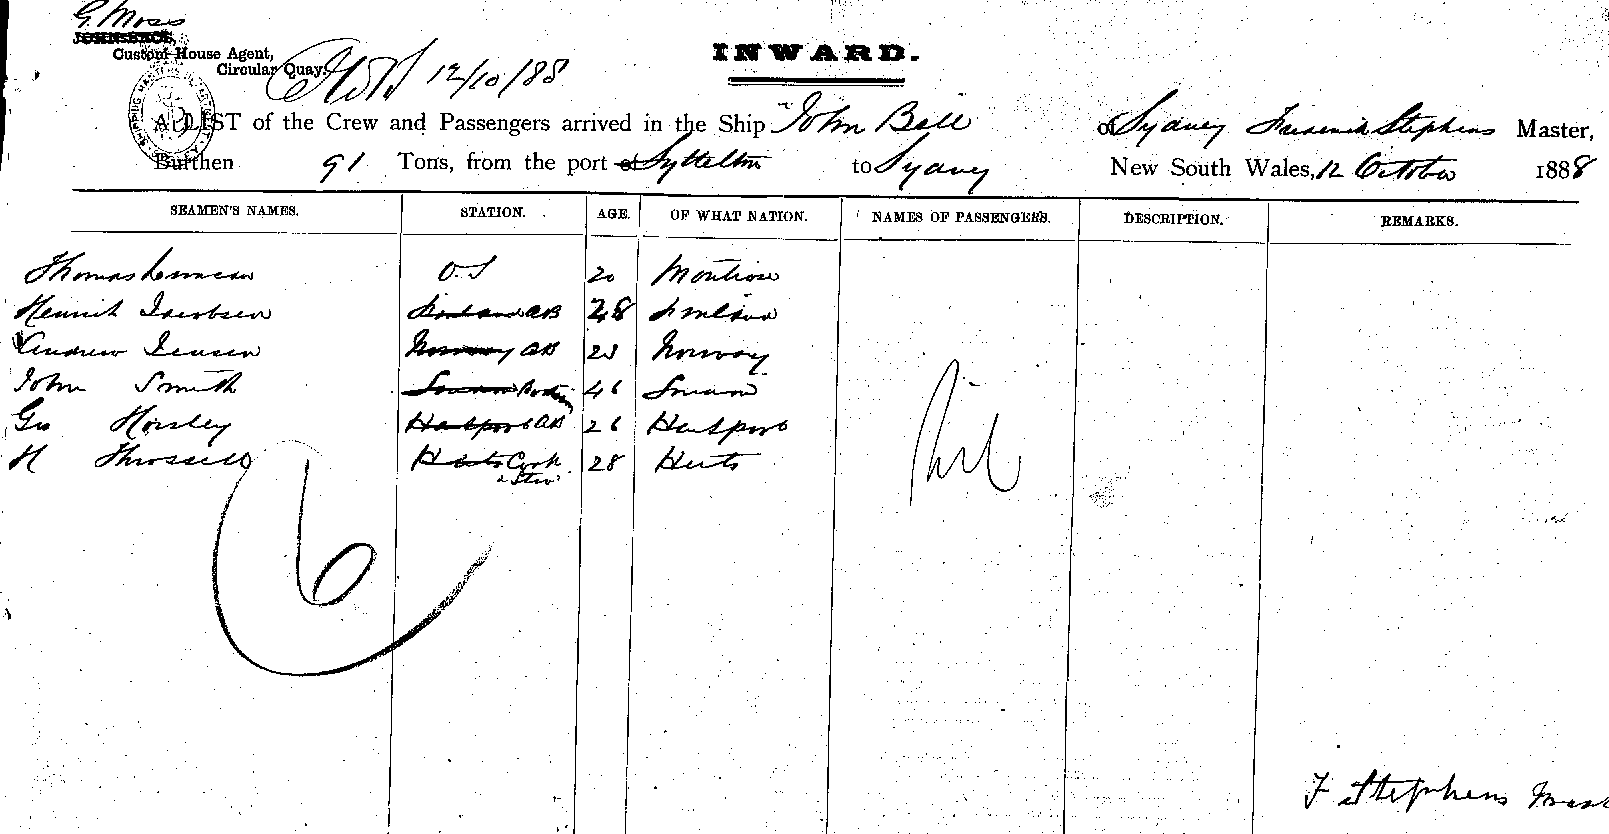 G. Moss
Custom House Agent,
Circular Quay.
12/10/88
INWARD.
A LIST of the Crew and Passengers arrived in the Ship John Bell of Sydney Frederick Stephens Master,
Burthen 91 Tons, from the port of Lyttelton to Sydney New South Wales, 12 October 1888
SEAMEN'S NAMES. STATION. AGE. OF WHAT NATION. NAMES OF PASSENGERS. DESCRIPTION. REMARKS.
Thomas O.S 20 Montrose
Jacobsen AB 28
Andrew Jensen Norway AB 23 Norway
John Smith 46
Geo Horsley AB 26
H Herts Cook 28 Herts
& Stew
Nil
6
F Stephens